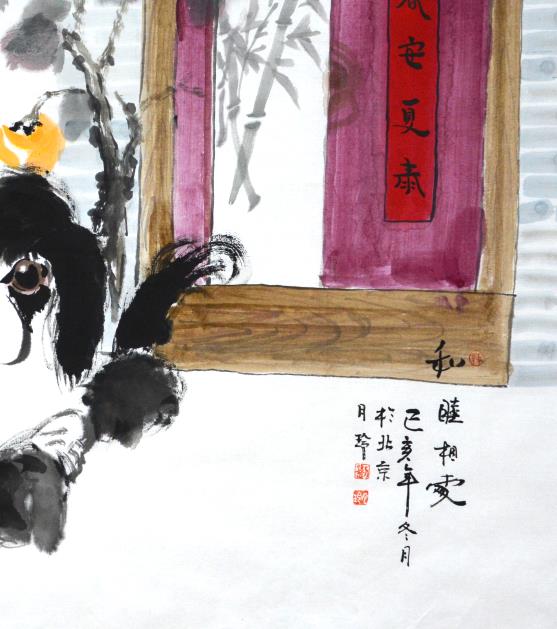 春安夏泰
和睦相處
己亥年冬月
於北京
月